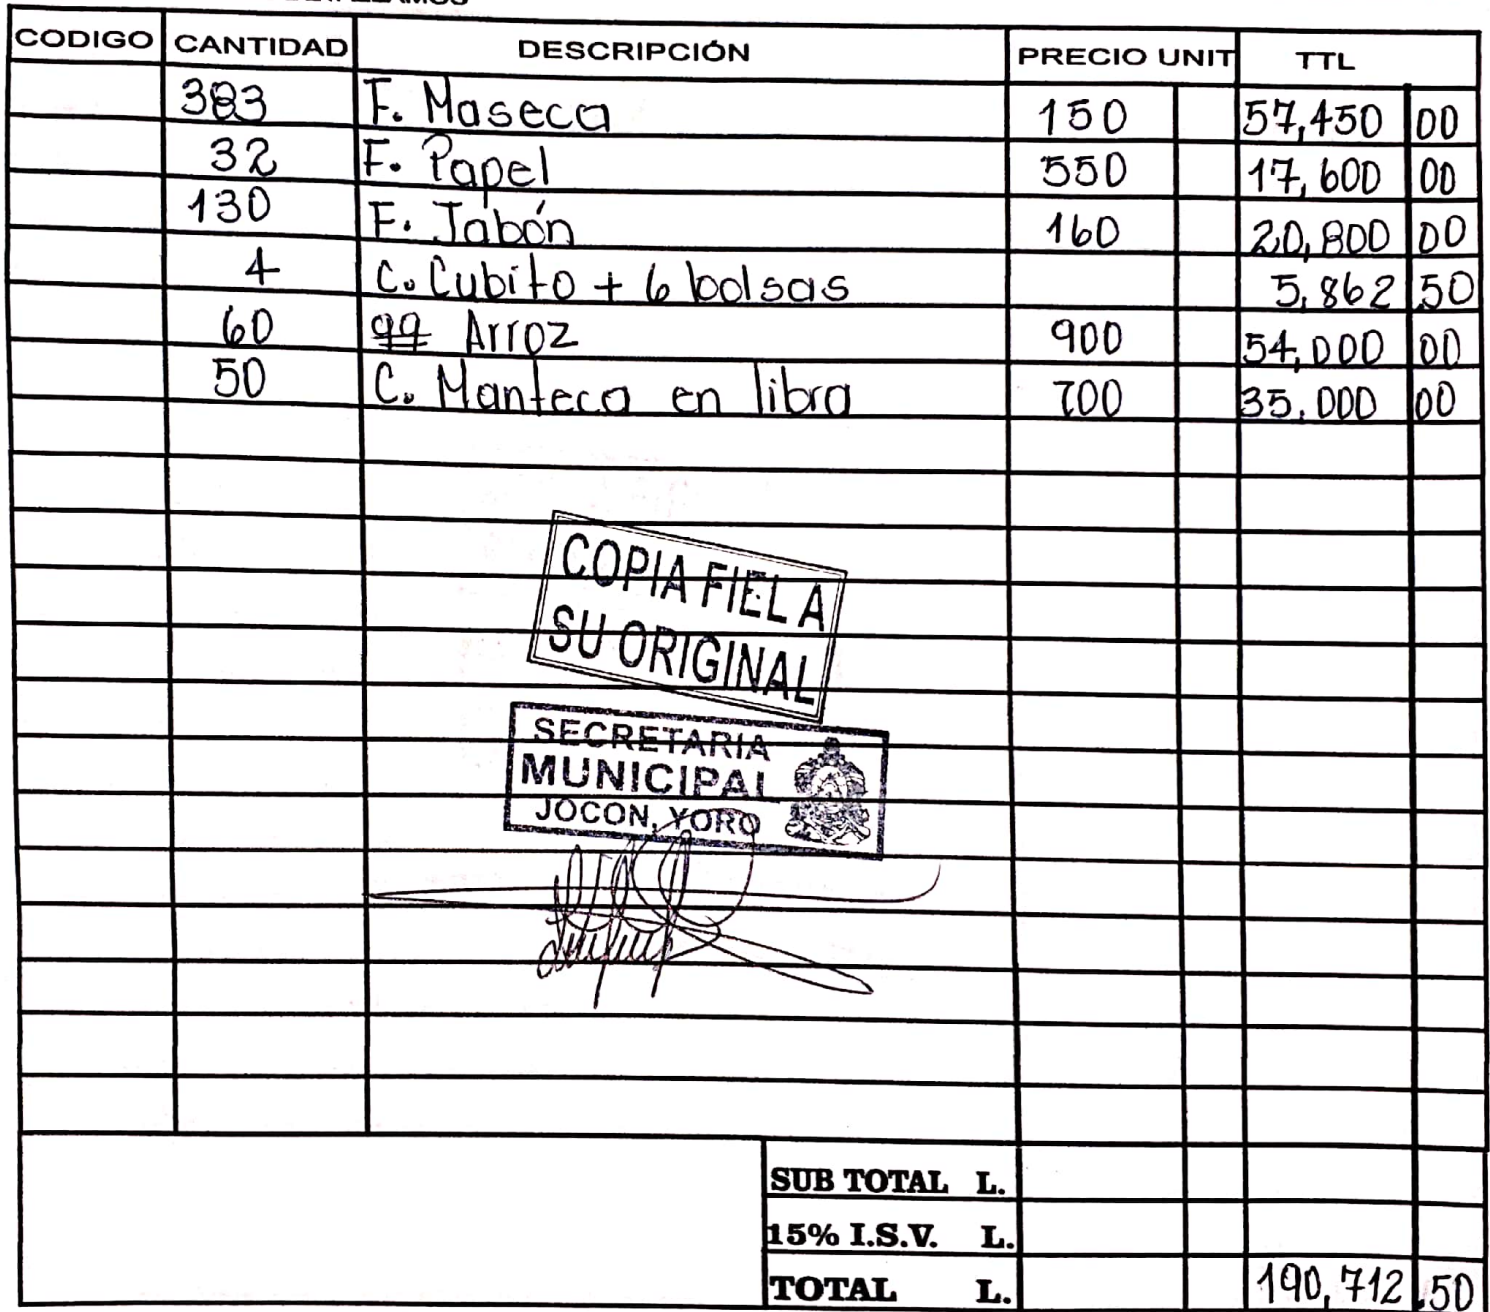 CODIGO CANTIDAD DESCRIPCIÓN PRECIO UNIT TTL
383 F. Maseca 150 57,450 00
32 F. Papel 550 17,600 00
130 F. Jabón 160 20,800 00
4 C. Cubito + 6 bolsas 5,862 50
60 qq Arroz 900 54,000 00
50 C. Manteca en libra 700 35,000 00
COPIA FIEL A
SU ORIGINAL
SECRETARIA
MUNICIPAL
JOCON, YORO
SUB TOTAL L.
15% I.S.V. L.
TOTAL L. 190,712.50